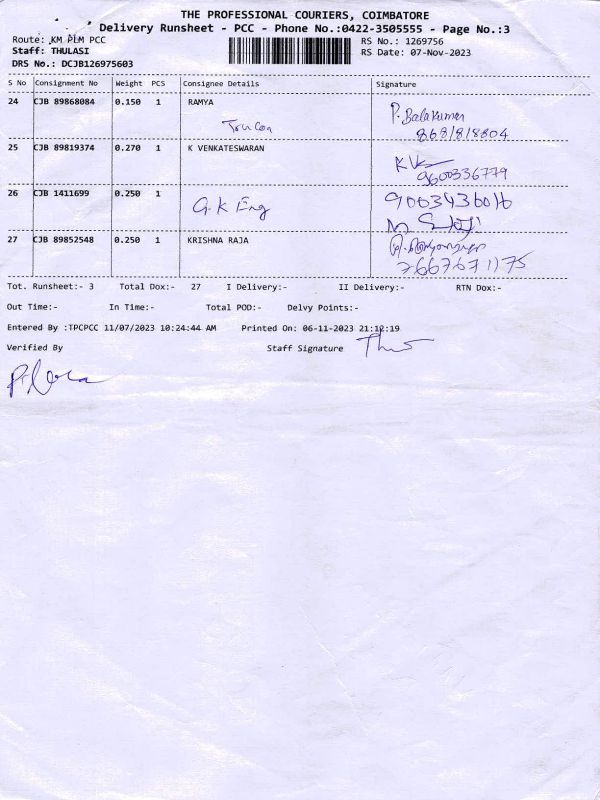 THE PROFESSIONAL COURIERS, COIMBATORE
Delivery Runsheet - PCC - Phone No.:0422-3505555 - Page No.:3
Route: KM PLM PCC RS No.: 1269756
Staff: THULASI RS Date: 07-Nov-2023
DRS No.: DCJB126975603
S No Consignment No Weight PCS Consignee Details Signature
24 CJB 89868084 0.150 1 RAMYA P. Balakumar
868/8/8804
25 CJB 89819374 0.270 1 K VENKATESWARAN
9600336779
26 CJB 1411699 0.250 1 G.K Eng 9003436016
27 CJB 89852548 0.250 1 KRISHNA RAJA
7667671175
Tot. Runsheet:- 3 Total Dox:- 27 I Delivery:- II Delivery:- RTN Dox:-
Out Time:- In Time:- Total POD:- Delvy Points:-
Entered By :TPCPCC 11/07/2023 10:24:44 AM Printed On: 06-11-2023 21:12:19
Verified By Staff Signature